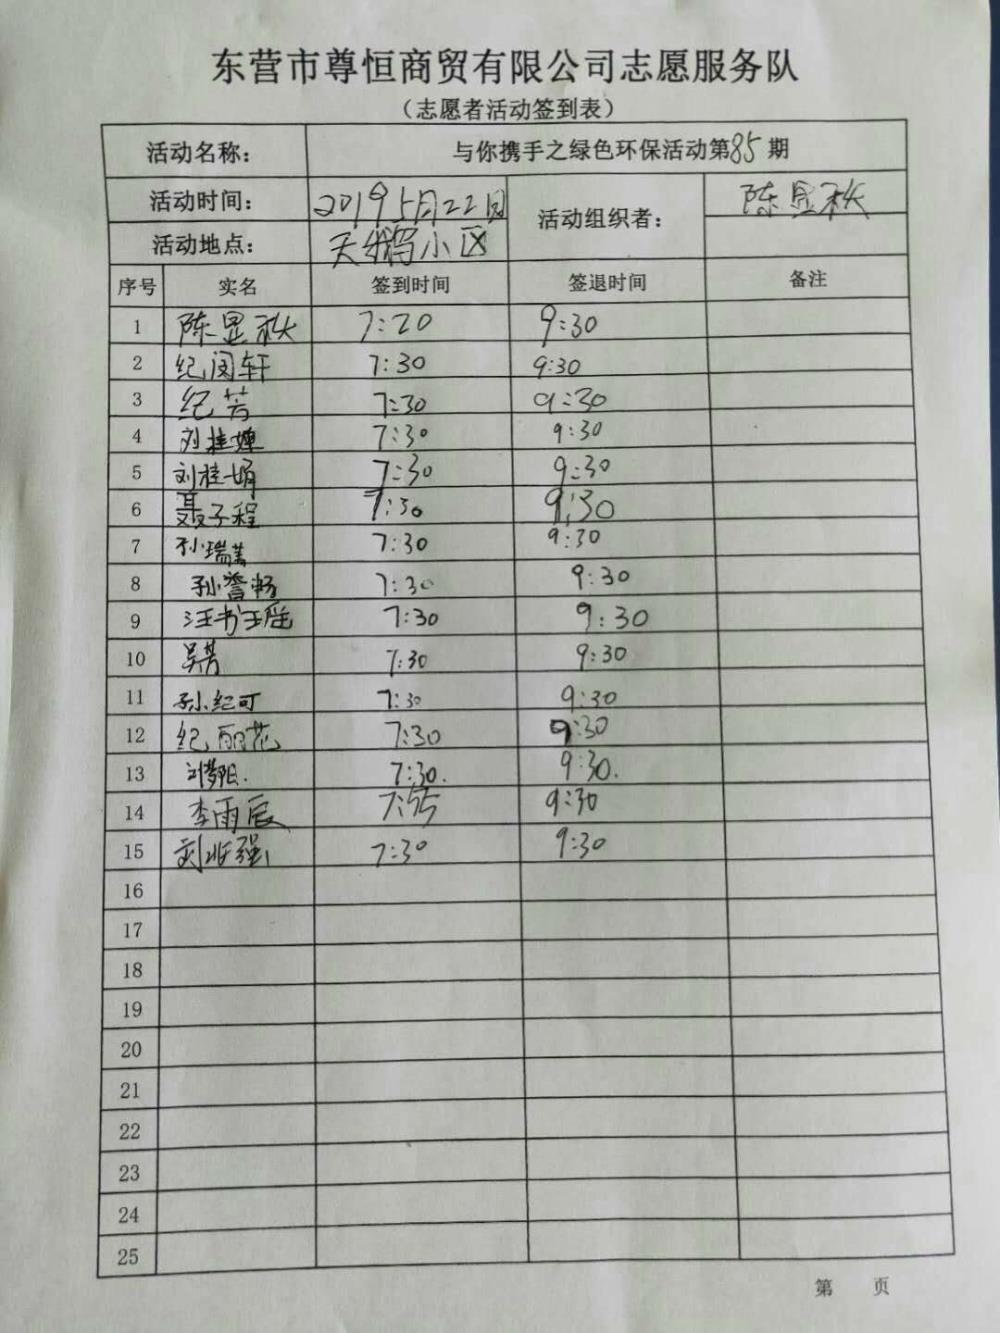 东营市尊恒商贸有限公司志愿服务队
（志愿者活动签到表）
活动名称： 与你携手之绿色环保活动第85期
活动时间： 2019 5月22日 活动组织者： 陈显秋
活动地点： 天鹅小区
序号 实名 签到时间 签退时间 备注
1 陈显秋 7:20 9:30
2 纪闵轩 7:30 9:30
3 纪芳 7:30 9:30
4 刘桂婵 7:30 9:30
5 刘桂娟 7:30 9:30
6 聂子程 7:30 9:30
7 孙瑞 7:30 9:30
8 孙誉畅 7:30 9:30
9 汪书瑶 7:30 9:30
10 吴芳 7:30 9:30
11 孙纪可 7:30 9:30
12 纪丽花 7:30 9:30
13 刘梦阳. 7:30. 9:30.
14 李雨辰 9:30
15 刘 强 7:30 9:30
16
17
18
19
20
21
22
23
24
25
第 页